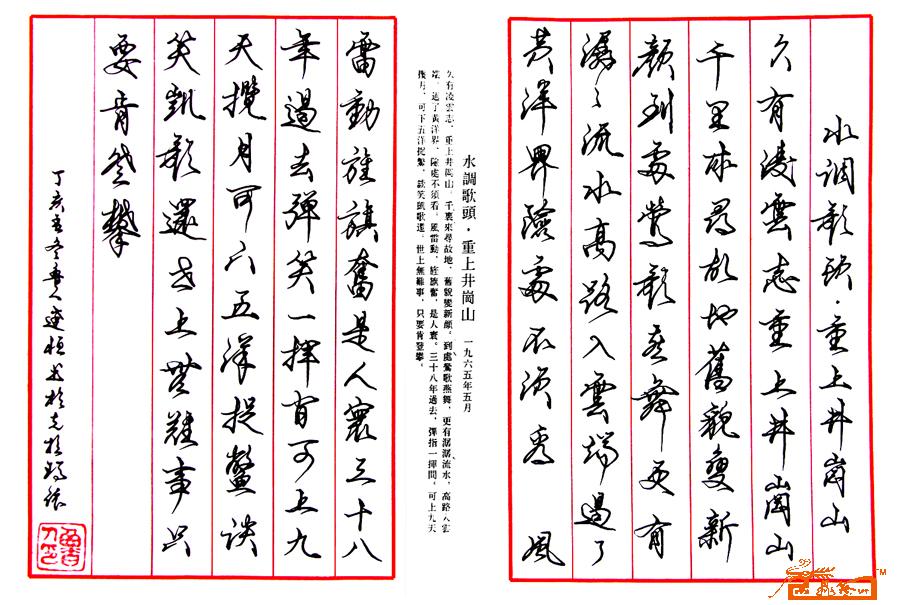 水调歌頭·重上井崗山
久有凌雲志重上井崗山
千里來尋故地舊貌變新
颜到處莺歌燕舞更有
潺々流水高路入雲端過了
黄洋界險處不須看 風
水調歌頭·重上井崗山 一九六五年五月
久有凌雲志,重上井崗山。千裏來尋故地,舊貌變新顔。到處鶯歌燕舞,更有潺潺流水,高路入雲
端。過了黃洋界,險處不須看。風雷動,旌旗奮,是人寰。三十八年過去,彈指一揮間。可上九天
攬月,可下五洋捉鱉,談笑凱歌還。世上無難事,只要肯登攀。
雷動旌旗奮是人寰三十八
年過去彈指一揮间可上九
天攬月可下五洋捉鱉談
笑凱歌還世上無難事只
要肯登攀
丁亥孟冬魯人建恒书於克拉瑪依
TM